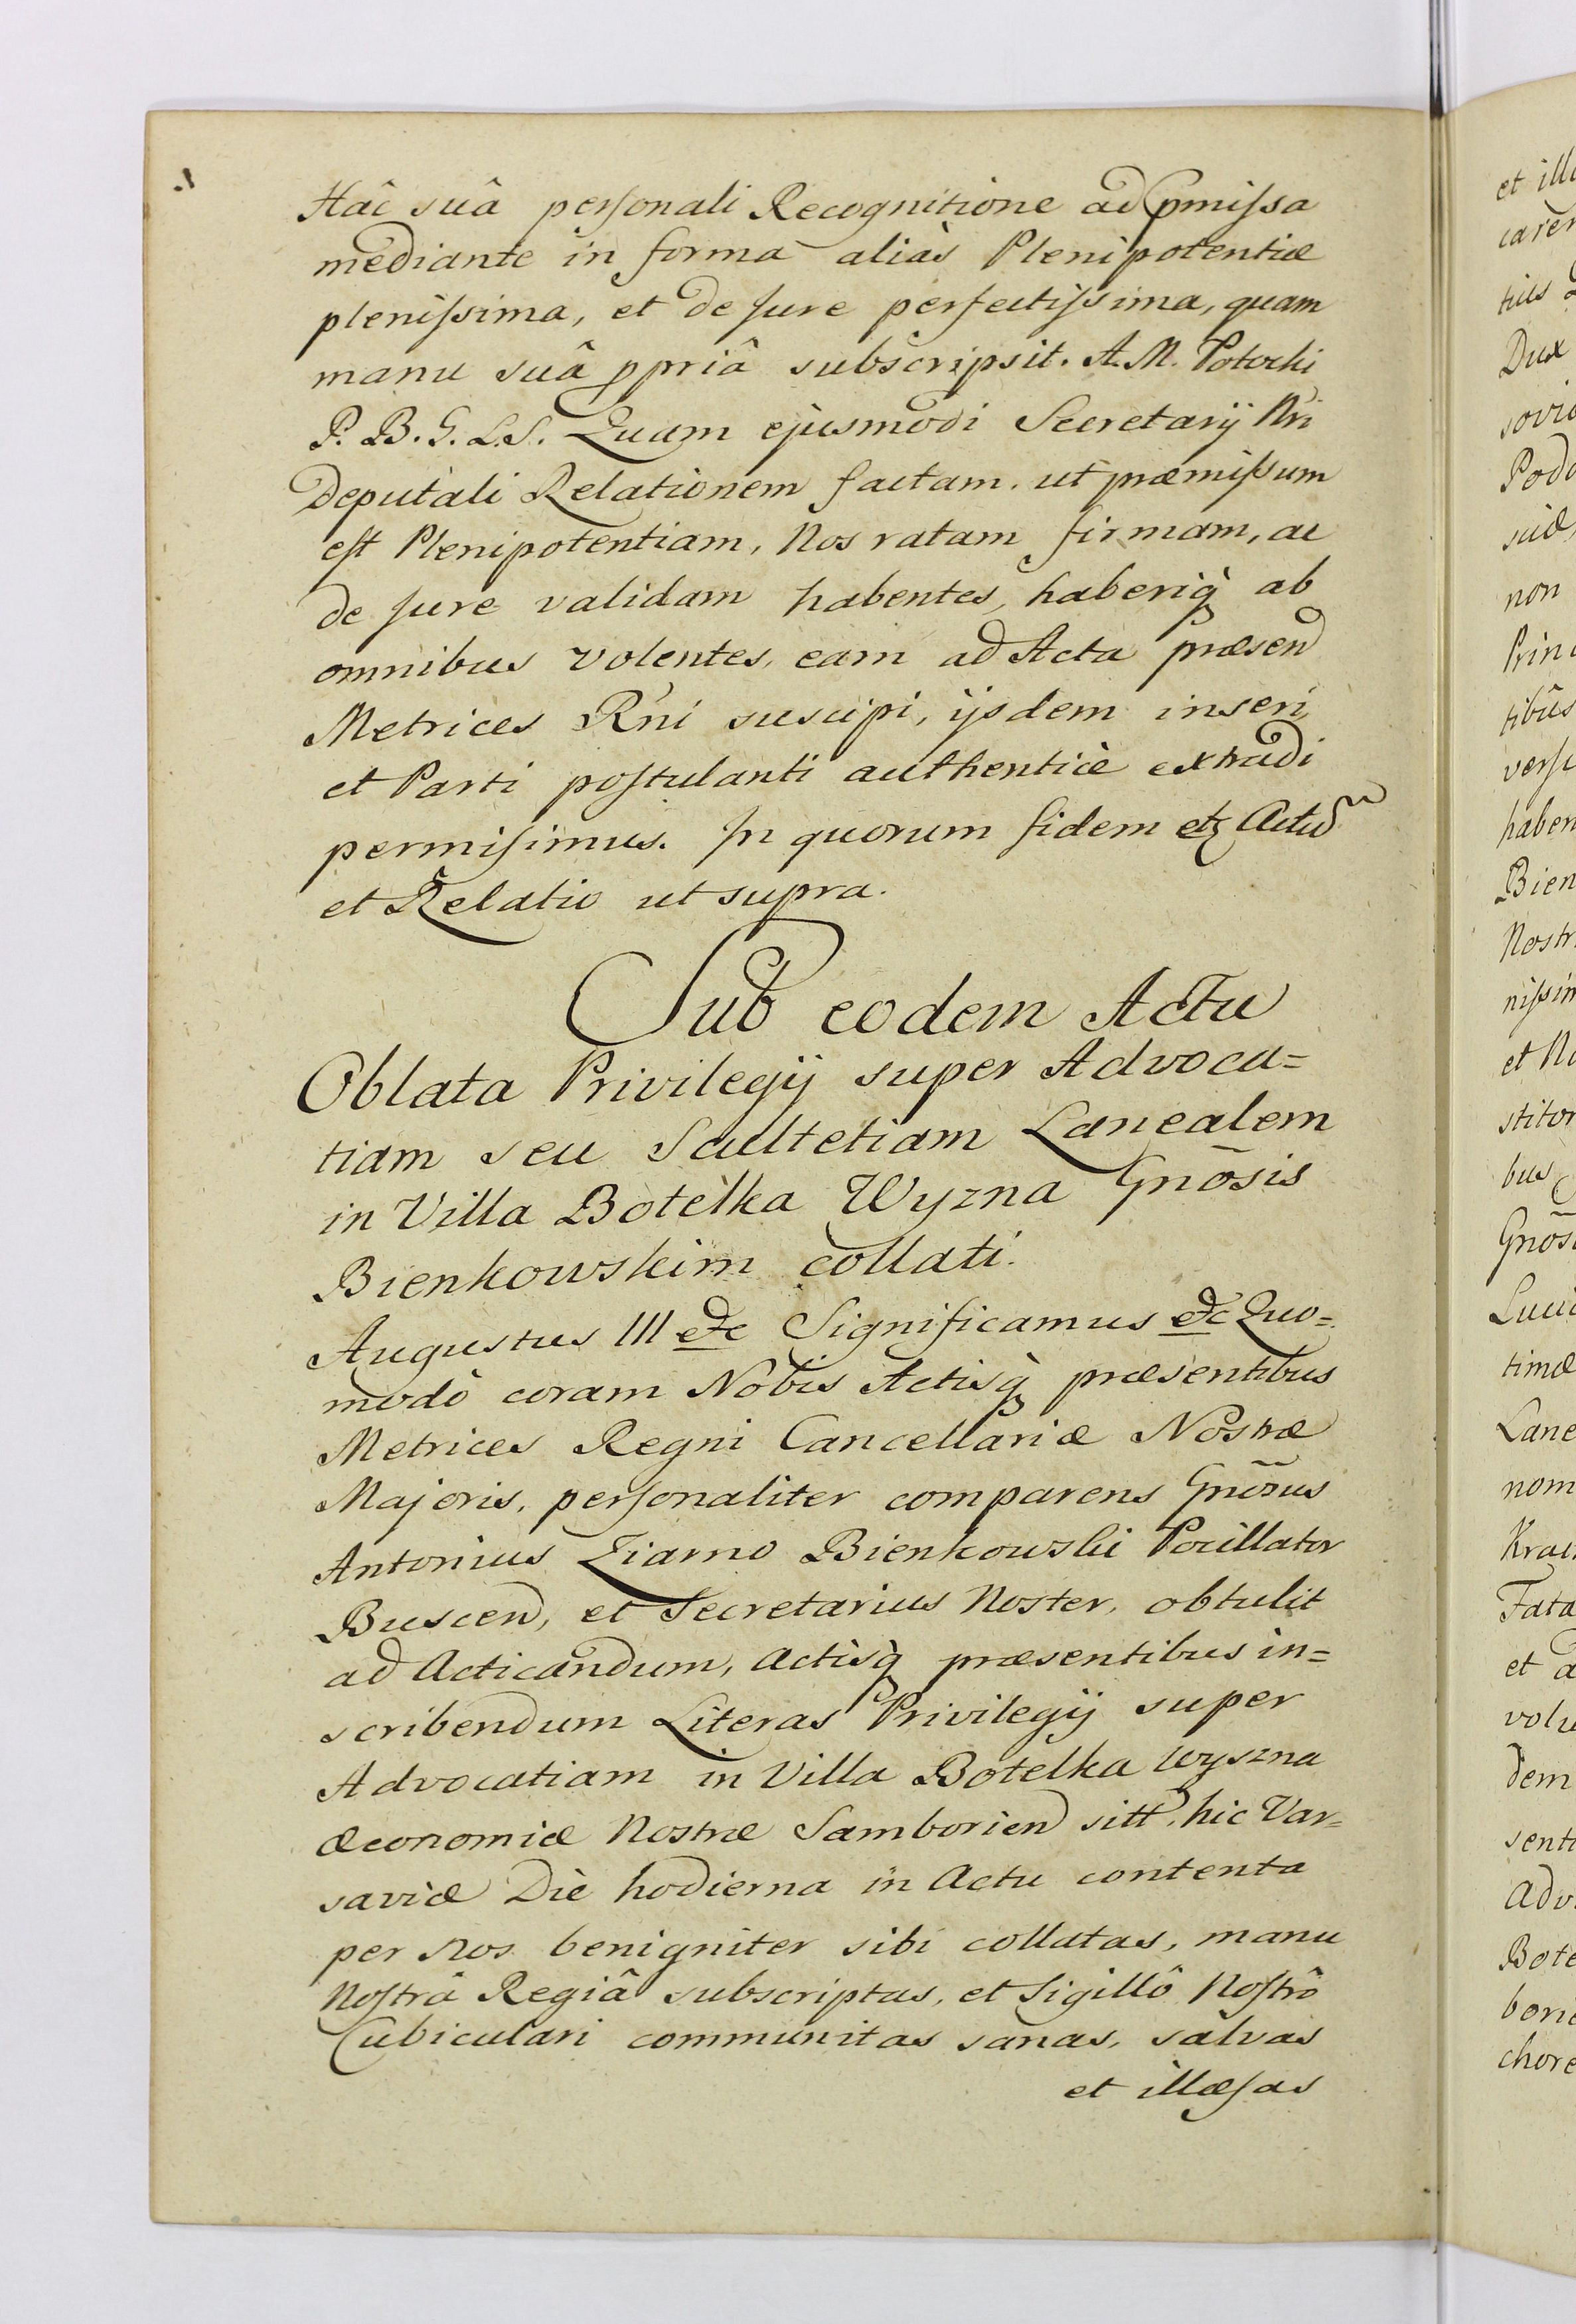 Hâc suâ personali Recognitione ad pmissa
mediante in forma aliàs Plenipotentiæ
plenissima, et de Jure perfectissima, quam
manu suâ ppriâ subscripsit. A. M. Potocki
P. B. G. L.S. Quam ejusmodi Secretarij Nri
deputati Relationem factam, ut præmissum
est Plenipotentiam, Nos ratam firmam, ac
de Jure validam habentes, haberiq̀ ab
omnibus volentes, eam ad Acta præsend
Metrices Rni suscipi, ijsdem inseri,
et Parti postulanti authenticè extradi
permisimus. In quorum fidem etz Actu
et Relatio ut supra.
Sub eodem Actu
Oblata Privilegij super Advoca=
tiam seu Scultetiam Lanealem
in Villa Botelka Wyzna Gnōsis
Bienkowskim collati.
Augustus III etc Significamus etc Quo=
modò coram Nobis Actisq̀ præsentibus
Metrices Regni Cancellariæ Nostræ
Majoris, personaliter comparens Gnōsus
Antonius Ziarno Bienkowski Pocillator
Buscend, et Secretarius Noster, obtulit
ad Acticandum, Actisq̀ præsentibus in=
scribendum Literas Privilegij super
Advocatiam in Villa Botelka wyszna
Œconomiæ Nostræ Samboriend sitt, hic Var=
saviæ Diè hodierna in Actu contenta
per Nos benigniter sibi collatas, manu
Nostrâ Regiâ subscriptas, et Sigillô Nostrô
Cubiculari communitas sanas, salvas
et illæsas
et ill
Dux
Podo
non
haben
Bien
Nostr
nissim
et No
stitor
bus
Gnōsi
timæ
Lane
nom
Fata
et a
volu
dem
senti
Adv
Bote
chore